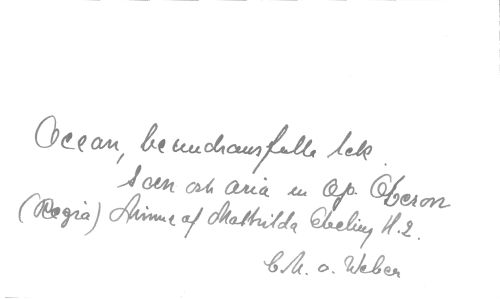 Ocean, beundransfulla
Scen och aria ur Op. Oberon
(Regia) Minne af Mathilda Ebeling H.2.
C.M. v. Weber